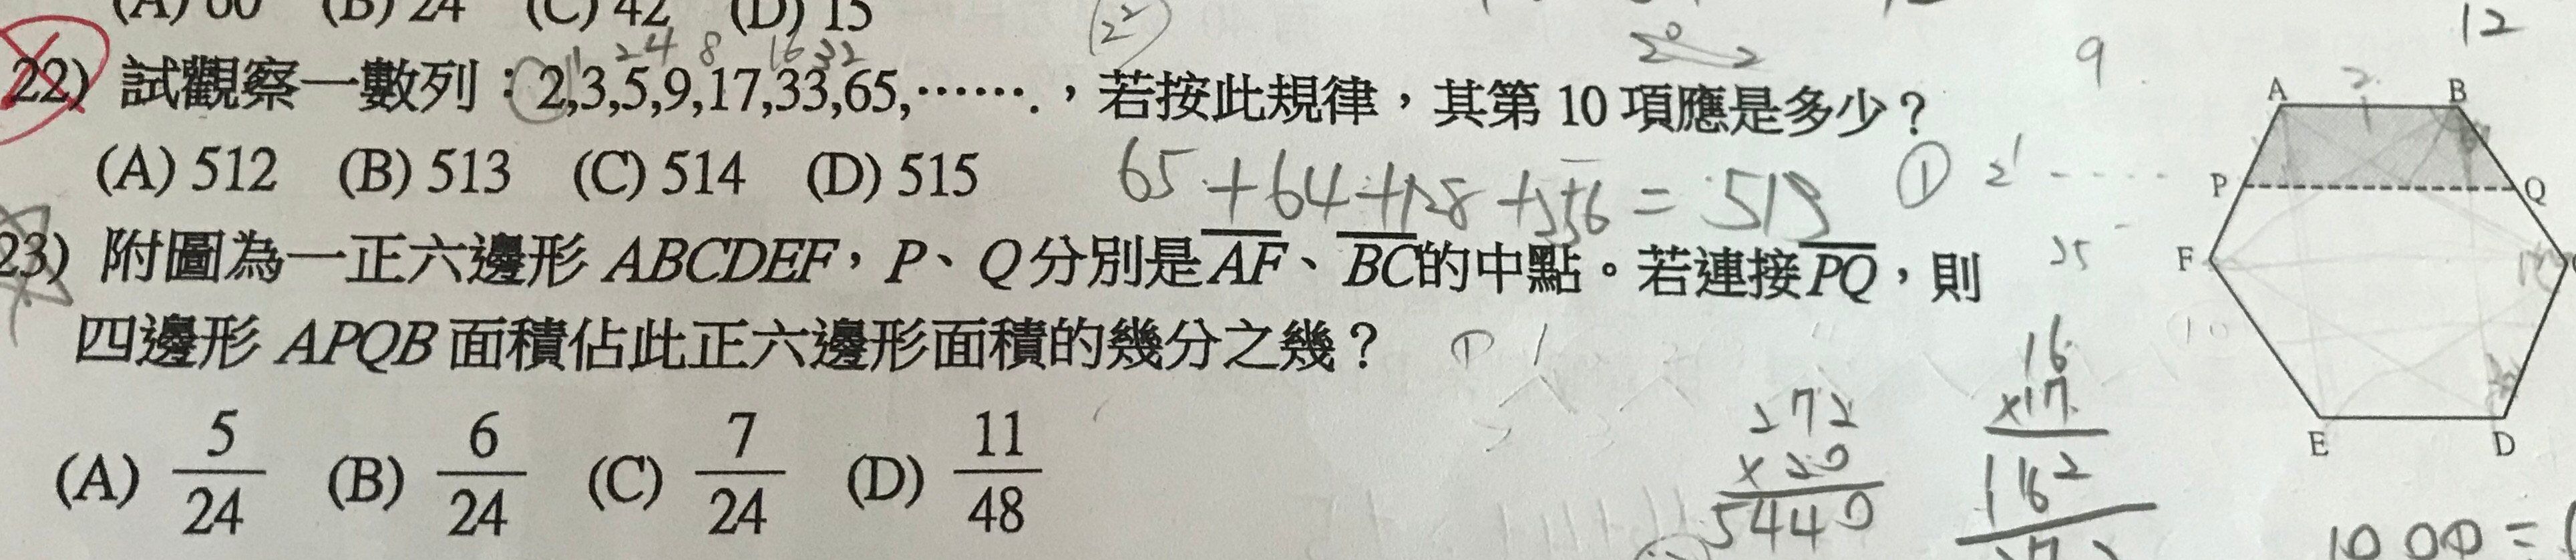 (A) 60 (B) 24 (C) 42 (D) 15
2²
1 2 4 8 16 32
2⁰ 2
9
12
22) 試觀察一數列：2,3,5,9,17,33,65,…….，若按此規律，其第 10 項應是多少？
(A) 512 (B) 513 (C) 514 (D) 515
65+64+128+256=513
① 2¹
A B
P Q
F
E D
23) 附圖為一正六邊形 ABCDEF，P、Q分別是AF、BC的中點。若連接PQ，則
25
四邊形 APQB 面積佔此正六邊形面積的幾分之幾？
① 1
(A) 5/24 (B) 6/24 (C) 7/24 (D) 11/48
272
×20
5440
16
×17
162